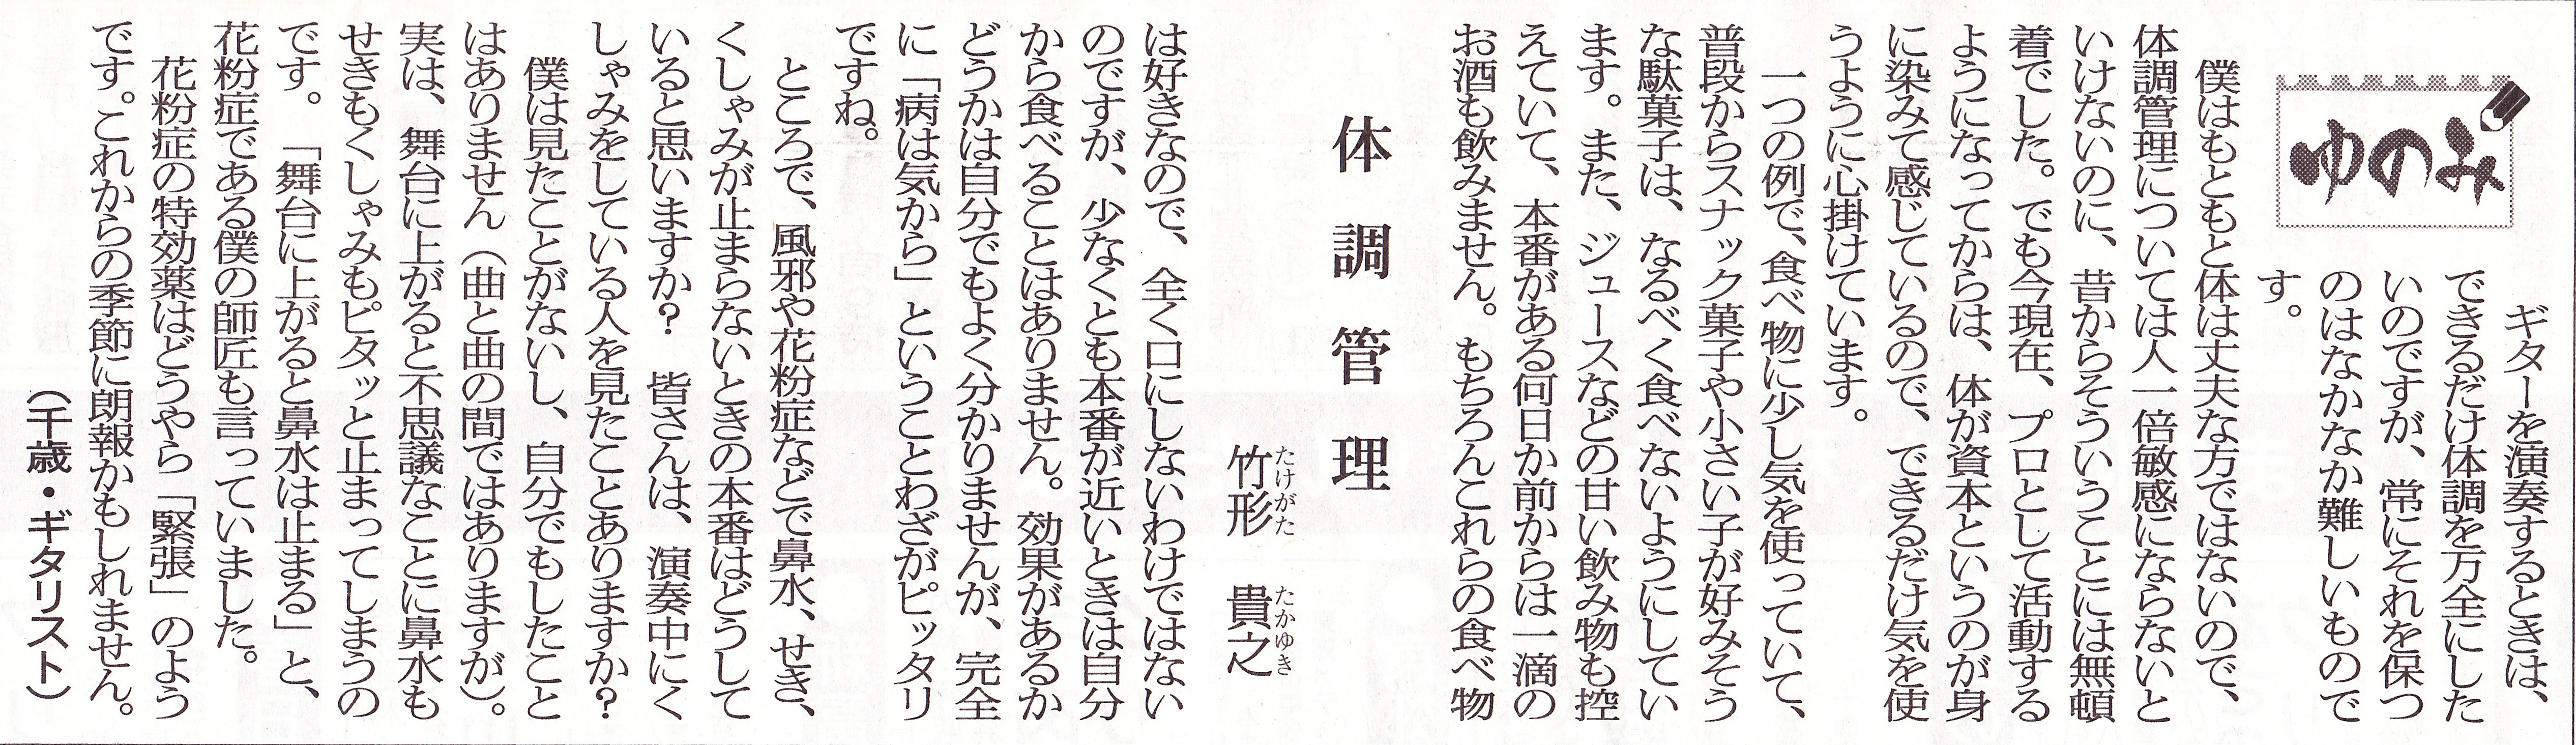 ゆのみ
ギターを演奏するときは、
できるだけ体調を万全にした
いのですが、常にそれを保つ
のはなかなか難しいもので
す。
僕はもともと体は丈夫な方ではないので、
体調管理については人一倍敏感にならないと
いけないのに、昔からそういうことには無頓
着でした。でも今現在、プロとして活動する
ようになってからは、体が資本というのが身
に染みて感じているので、できるだけ気を使
うように心掛けています。
一つの例で、食べ物に少し気を使っていて、
普段からスナック菓子や小さい子が好みそう
な駄菓子は、なるべく食べないようにしてい
ます。また、ジュースなどの甘い飲み物も控
えていて、本番がある何日か前からは一滴の
お酒も飲みません。もちろんこれらの食べ物
体調管理
たけがた たかゆき
竹形 貴之
は好きなので、全く口にしないわけではない
のですが、少なくとも本番が近いときは自分
から食べることはありません。効果があるか
どうかは自分でもよく分かりませんが、完全
に「病は気から」ということわざがピッタリ
ですね。
ところで、風邪や花粉症などで鼻水、せき、
くしゃみが止まらないときの本番はどうして
いると思いますか? 皆さんは、演奏中にく
しゃみをしている人を見たことありますか?
僕は見たことがないし、自分でもしたこと
はありません(曲と曲の間ではありますが)。
実は、舞台に上がると不思議なことに鼻水も
せきもくしゃみもピタッと止まってしまうの
です。「舞台に上がると鼻水は止まる」と、
花粉症である僕の師匠も言っていました。
花粉症の特効薬はどうやら「緊張」のよう
です。これからの季節に朗報かもしれません。
(千歳・ギタリスト)